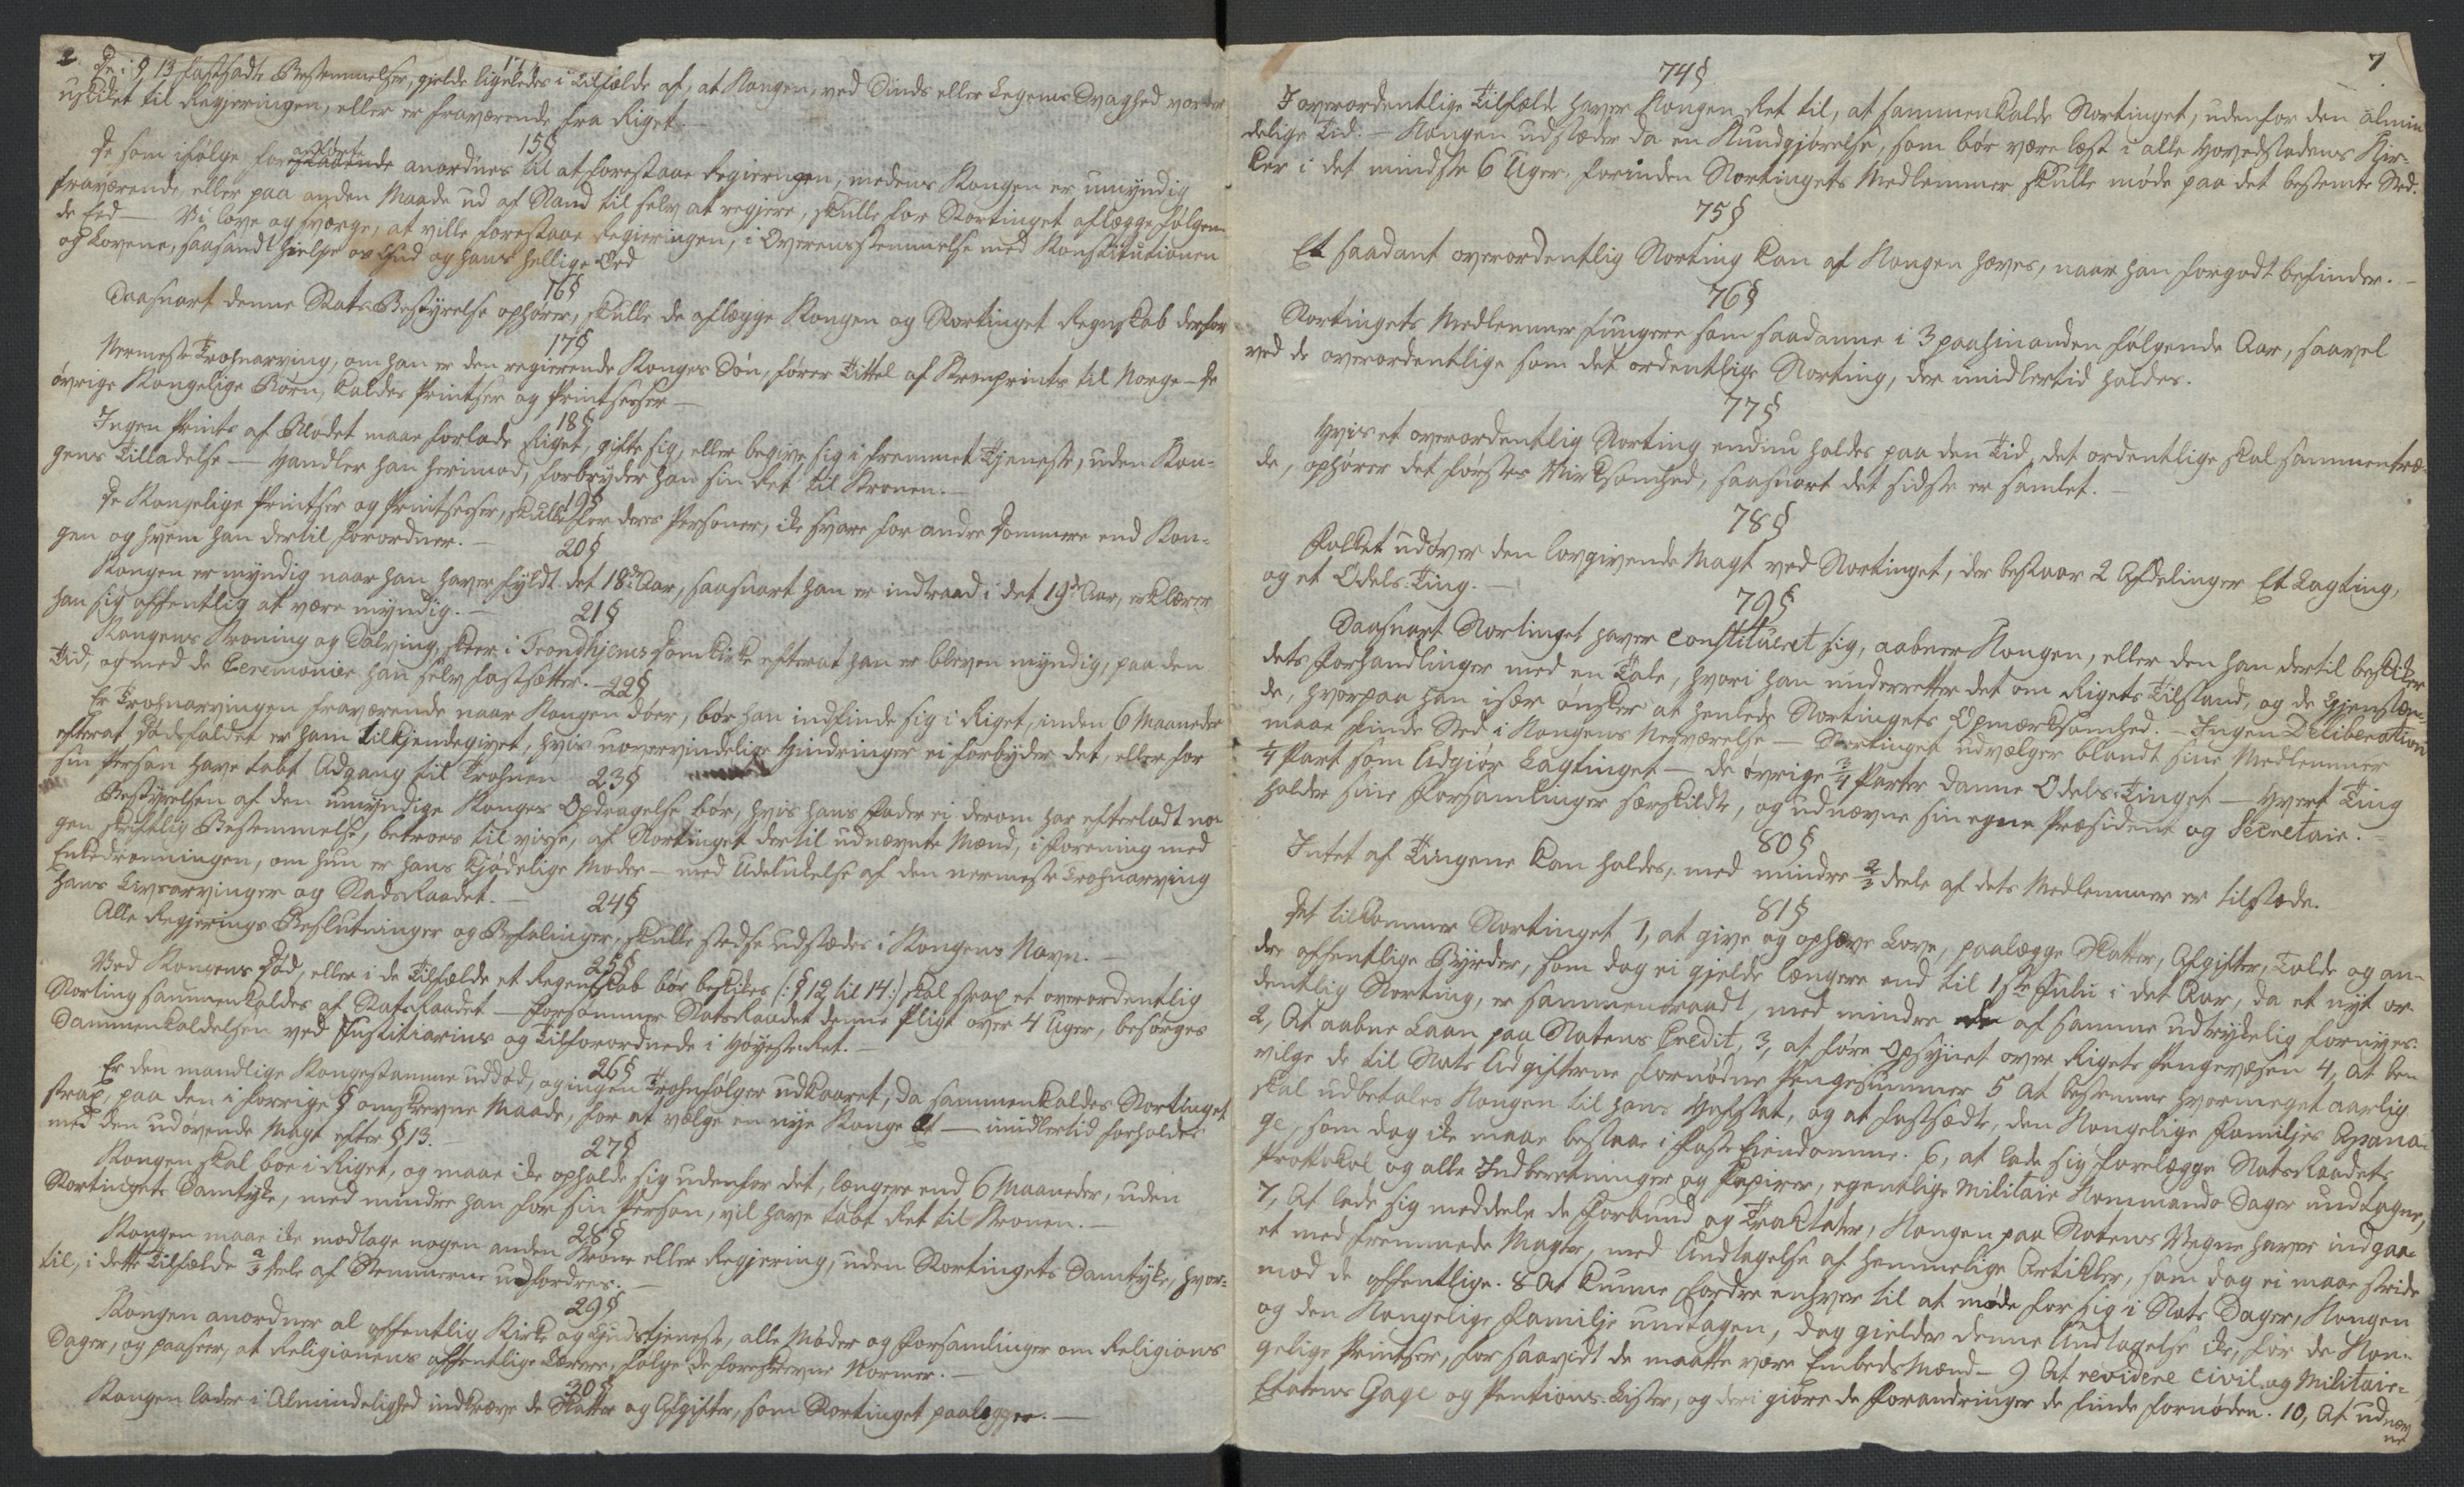 2.
14§
De i § 13 fastsadte Bestemmelser, gjelde ligeledes i Tilfælde af, at Kongen, ved Sinds eller Legems Svaghed vorder
uskiket til Regjeringen, eller er fraværende fra Riget. —
15§
De som ifølge foranførte anordnes til at forestaae Regieringen, medens Kongen er umyndig
fraværende, eller paa anden Maade ud af Stand til selv at regjere, skulle for Stortinget aflægge følgen-
de Eed — Vi love og sværge, at ville forestaae Regieringen, i Overensstemmelse med Konstitutionen
og Lovene, saasandt hielpe os Gud og hans hellige Ord
16§
Saasnart denne Stats Bestyrelse ophører, skulle de aflægge Kongen og Stortinget Regnskab derfor
17§
Nermeste Trohnarving, om han er den regierende Konges Søn, fører Tittel af Kronprints til Norge — De
øvrige Kongelige Børn, kaldes Printser og Printsesser —
18§
Ingen Prints af Blodet maae forlade Riget, gifte sig, eller begive sig i fremmet Tjeneste, uden Kon-
gens Tilladelse — Handler han herimod, forbryder han sin Ret til Kronen. —
19§
De Kongelige Printser og Printsesser, skulle for deres Personer, ike svare for andre Dommere end Kon-
gen og hvem han dertil forordner. —
20§
Kongen er myndig naar han haver fyldt det 18de Aar, saasnart han er indtraad i det 19de Aar, erklærer
han sig offentlig at være myndig. —
21§
Kongens Kroning og Salving, skeer i Trondhjems Domkirke efterat han er bleven myndig, paa den
Tid, og med de Ceremonier han selv fastsætter. —
22§
Er Trohnarvingen fraværende naar Kongen døer, bør han indfinde sig i Riget, inden 6 Maaneder
efterat Dødsfaldet er ham tilkjendegivet, hvis uovervindelige Hindringer ei forbyder det, eller for
sin Person have tabt Adgang til Trohnen
23§
Bestyrelsen af den umyndige Konges Opdragelse bør, hvis hans Fader ei derom har efterladt no-
gen skriftlig Bestemmelse, betroes til visse, af Stortinget dertil udnævnte Mænd, i Forening med
Enkedronningen, om hun er hans kjødelige Moder — med Udelukelse af den nermeste Trohnarving
hans Livsarvinger og StadsRaadet. —
24§
Alle Regjerings Beslutninger og Befalinger, skulle stedse udstædes i Kongens Navn. —
25§
Ved Kongens Død, eller i de Tilfælde et Regentskab bør beskikes (: § 12 til 14 :) skal strax et overordentlig
Storting sammenkaldes af StatsRaadet — Forsømmer StatsRaadet denne Pligt over 4 Uger, besørges
Sammenkaldelsen ved Justitiarius og Tilforordnede i Høyeste-Ret. —
26§
Er den mandlige Kongestamme uddød, og ingen Trohnfølger udkaaret, da sammenkaldes Stortinget
strax, paa den i forrige § omskrevne Maade, for at vælge en nye Konge Æt — imidlertid forholdes
med den udøvende Magt efter § 13. —
27§
Kongen skal boe i Riget, og maae ike opholde sig udenfor det, længere end 6 Maaneder, uden
Stortingets Samtyke, med mindre han for sin Person, vil have tabt Ret til Kronen. —
28§
Kongen maae ike modtage nogen anden Krone eller Regjering, uden Stortingets Samtyke, hvor-
til, i dette Tilfælde 2/3 Dele af Stemmerne udfordres. —
29§
Kongen anordner al offentlig Kirke og Gudstjeneste, alle Møder og Forsamlinger om Religions
Sager, og paaseer, at Religionens offentlige Lærere, følge de foreskrevne Normer. —
30§
Kongen lader i Almindelighed indkræve de Skatter og Afgifter, som Stortinget paalegger. —
7
74§
I overordentlige Tilfælde haver Kongen Ret til, at sammenkalde Stortinget, udenfor den almin
delige Tid. — Kongen udstæder da en Kundgjørelse, som bør være læst i alle Hovedstadens Kir-
ker i det mindste 6 Uger, forinden Stortingets Medlemmer skulle møde paa det bestemte Sted.
75§
Et saadant overordentlig Storting kan af Kongen hæves, naar han forgodt befinder. —
76§
Stortingets Medlemmer fungere som saadanne i 3 paahinanden følgende Aar, saavel
ved de overordentlige som det ordentlige Storting, der imidlertid holdes.
77§
Hvis et overordentlig Storting endnu holdes paa den Tid, det ordentlige skal sammentræ-
de, ophører det førstes Virksomhed, saasnart det sidste er samlet. —
78§
Folket udøver den lovgivende Magt ved Stortinget, der bestaar 2 Afdelinger Et Lagting,
og et Odels-Ting. —
79§
Saasnart Stortinget haver constitueret sig, aabner Kongen, eller den han dertil beskiker
dets Forhandlinger med en Tale, hvori han underretter det om Rigets Tilstand, og de Gjenstæn-
de, hvorpaa han især ønsker at henlede Stortingets Opmærksomhed. — Ingen Deliberation
maae finde Sted i Kongens Nerværelse — Stortinget udvælger blandt sine Medlemmer
1/4 Part som udgiør Lagtinget — de øvrige 3/4 Parter danne Odels-Tinget — Hvert Ting
holder sine Forsamlinger særskildte, og udnævne sin egne Præsident og Secretair. —
80§
Intet af Tingene kan holdes, med mindre 2/3 deele af dets Medlemmer er tilstede.
81§
Det tilkommer Stortinget 1, at give og ophæve Love, paalægge Skatter, Afgifter, Tolde og an-
dre offentlige Byrder, som dog ei gjelde længere end til 1ste Julii i det Aar, da et nyt or-
dentlig Storting, er sammentraadt, med mindre de af samme udtrykelig fornyes.
2, At aabne Laan paa Statens Credit, 3, at føre Opsynet over Rigets Pengevæsen 4, at be-
vilge de til Stats Udgifterne fornødne Pengesummer 5 At bestemme hvormeget aarlig
skal udbetales Kongen til hans Hofstat, og at fastsædte, den Kongelige Familjes Apana-
ge, som dog ike maae bestaae i faste Eiendomme. 6, at lade sig forelægge StatsRaadets
Protokol og alle Indberetninger og Papirer, egentlige Militair Kommando Sager undtagne,
7, At lade sig meddeele de Forbund og Traktater, Kongen paa Statens Vegne haver indgaa-
et med fremmede Magter, med Undtagelse af hemmelige Artikler, som dog ei maae stride
mod de offentlige. 8 At kunne fordre enhver til at møde for sig i Stats Sager, Kongen
og den Kongelige Familje undtagen, dog gjelder denne Undtagelse ike, for de Kon-
gelige Printser, for saavidt de maatte være EmbedsMænd — 9 At revidere civil og Militair-
Etatens Gage og Pentions-Lister, og deri giøre de Forandringer de finde fornøden. 10, At udnæv
ne